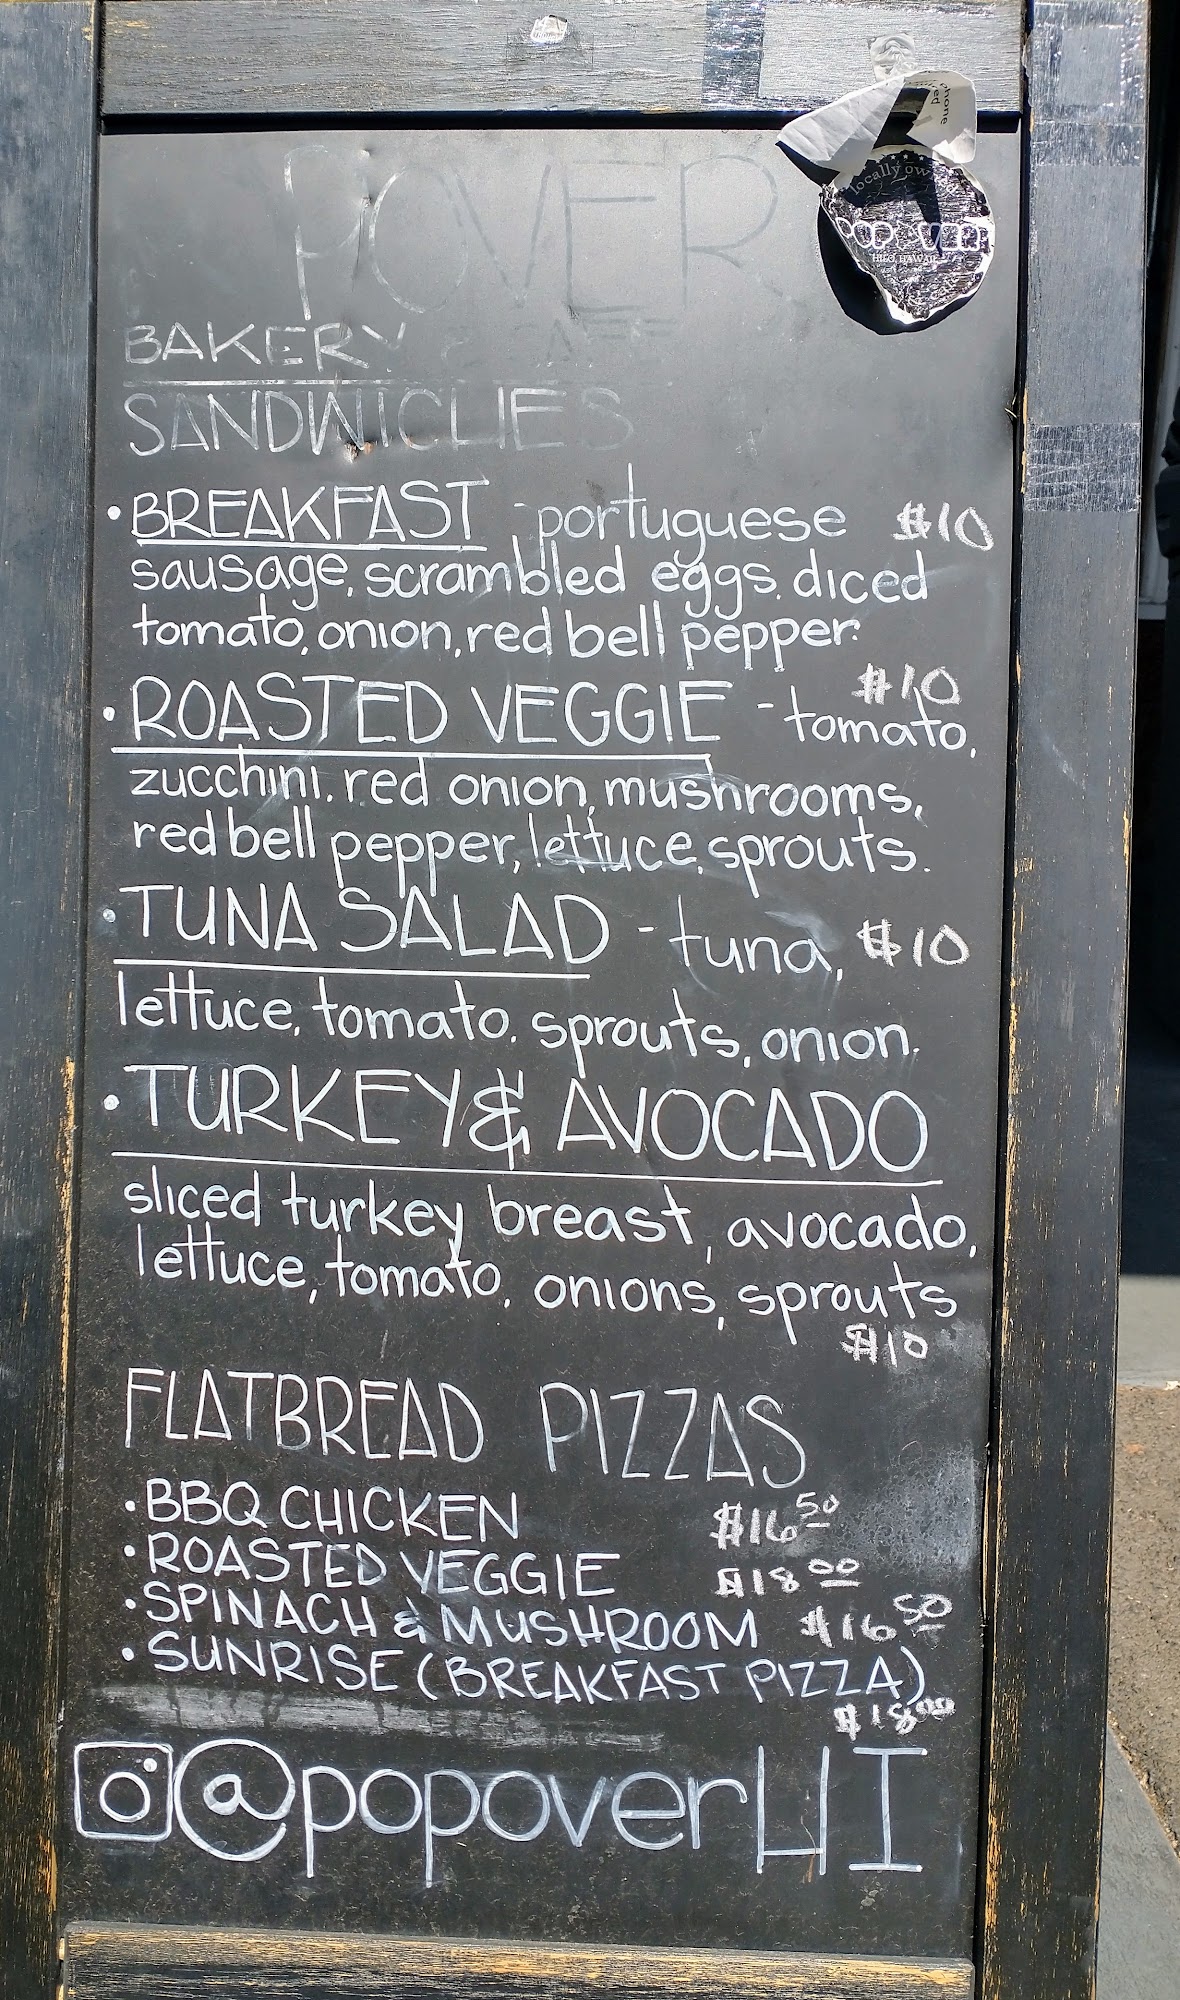 phone
locally ow
POPOVER
HILO, HAWAII
POVER
BAKERY & CAFE
SANDWICHES
• BREAKFAST - portuguese $10
sausage, scrambled eggs, diced
tomato, onion, red bell pepper.
• ROASTED VEGGIE - tomato, $10
zucchini, red onion, mushrooms,
red bell pepper, lettuce, sprouts.
• TUNA SALAD - tuna, $10
lettuce, tomato, sprouts, onion.
• TURKEY & AVOCADO
sliced turkey breast, avocado,
lettuce, tomato, onions, sprouts
$10
FLATBREAD PIZZAS
• BBQ CHICKEN $16.50
• ROASTED VEGGIE $18.00
• SPINACH & MUSHROOM $16.50
• SUNRISE (BREAKFAST PIZZA)
$18.00
@popoverHI